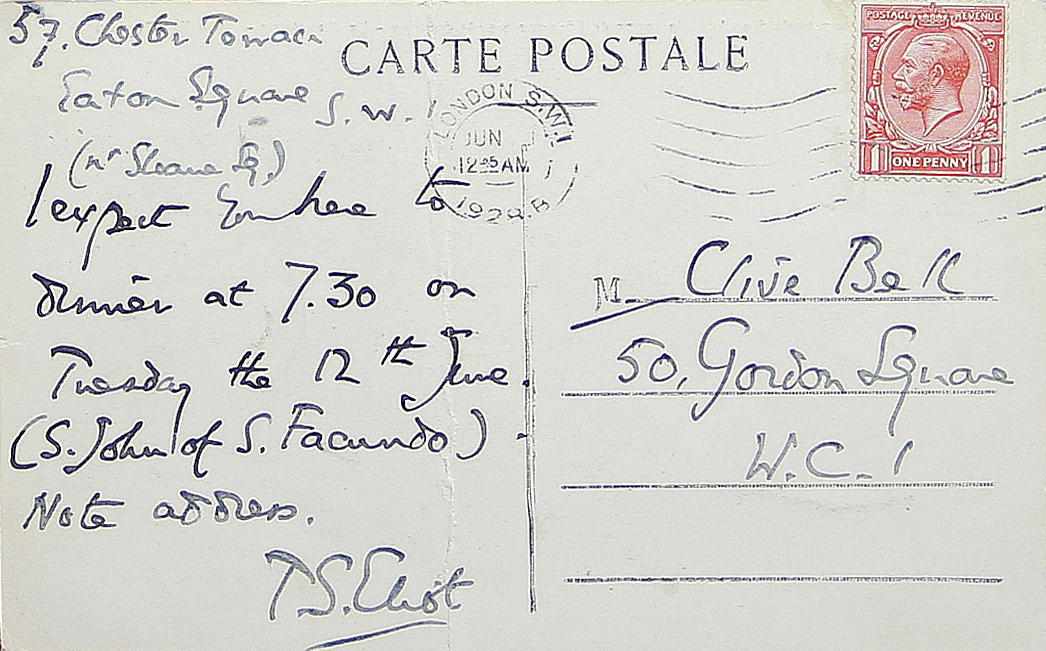 57. Chester Terrace
Eaton Square S.W.1
(nr Sloane Sq.)
I expect you here to
dinner at 7.30 on
Tuesday the 12th June.
(S. John of S. Facundo) -
Note address.
T.S. Eliot
CARTE POSTALE
LONDON S.W.1.
JUN
12 15 AM
1928. B
POSTAGE REVENUE
1 ONE PENNY 1
M. Clive Bell
50, Gordon Square
W.C.1